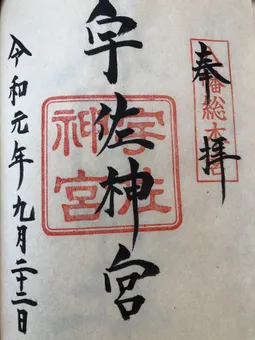 八幡総本宮
奉拝
宇佐神宮
宇佐
神宮
令和元年九月二十二日